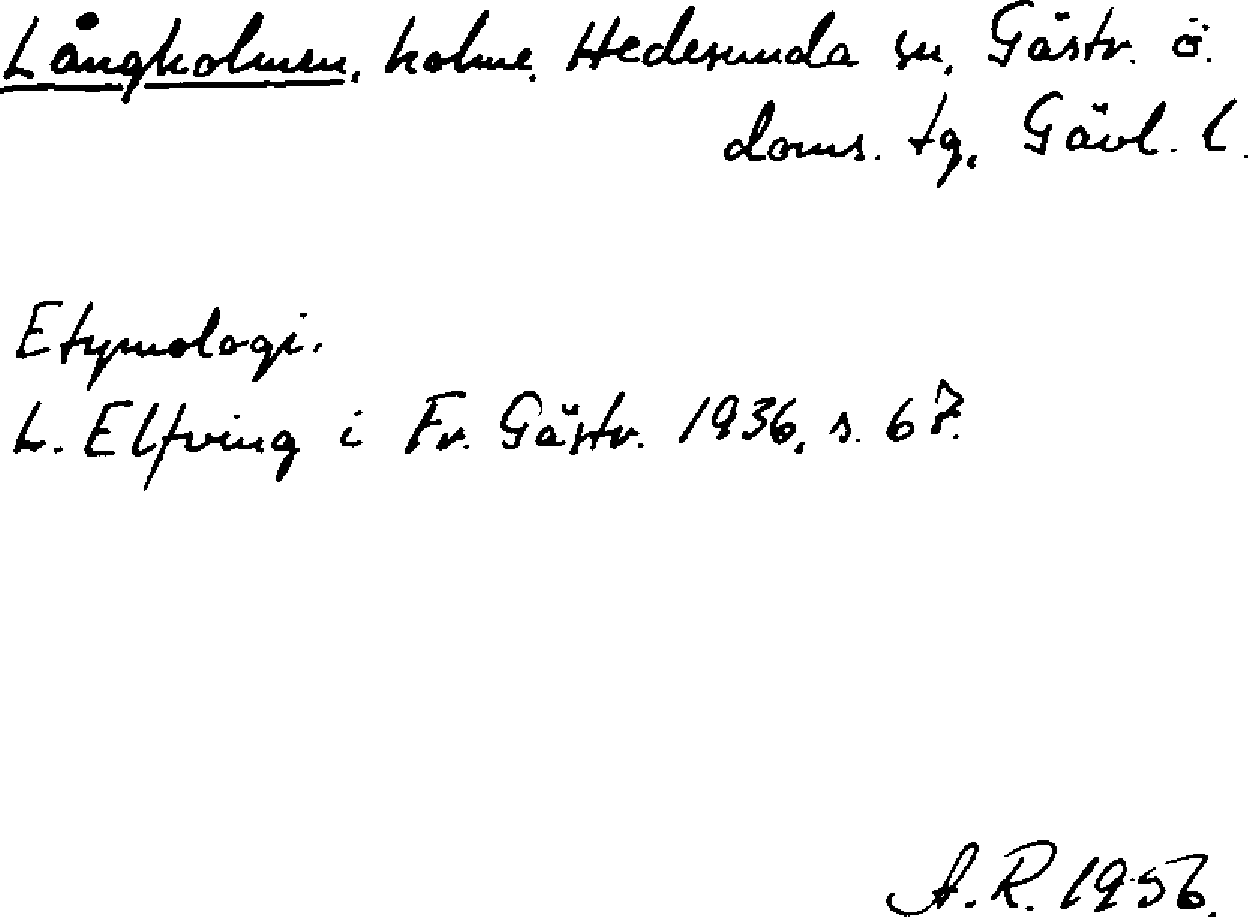 Långholmen, holme, Hedesunda sn, Gästr. ö.
doms. tg, Gävl. l.
Etymologi.
L. Elfving i Fr. Gästr. 1936, s. 67.
A.R. 1956.